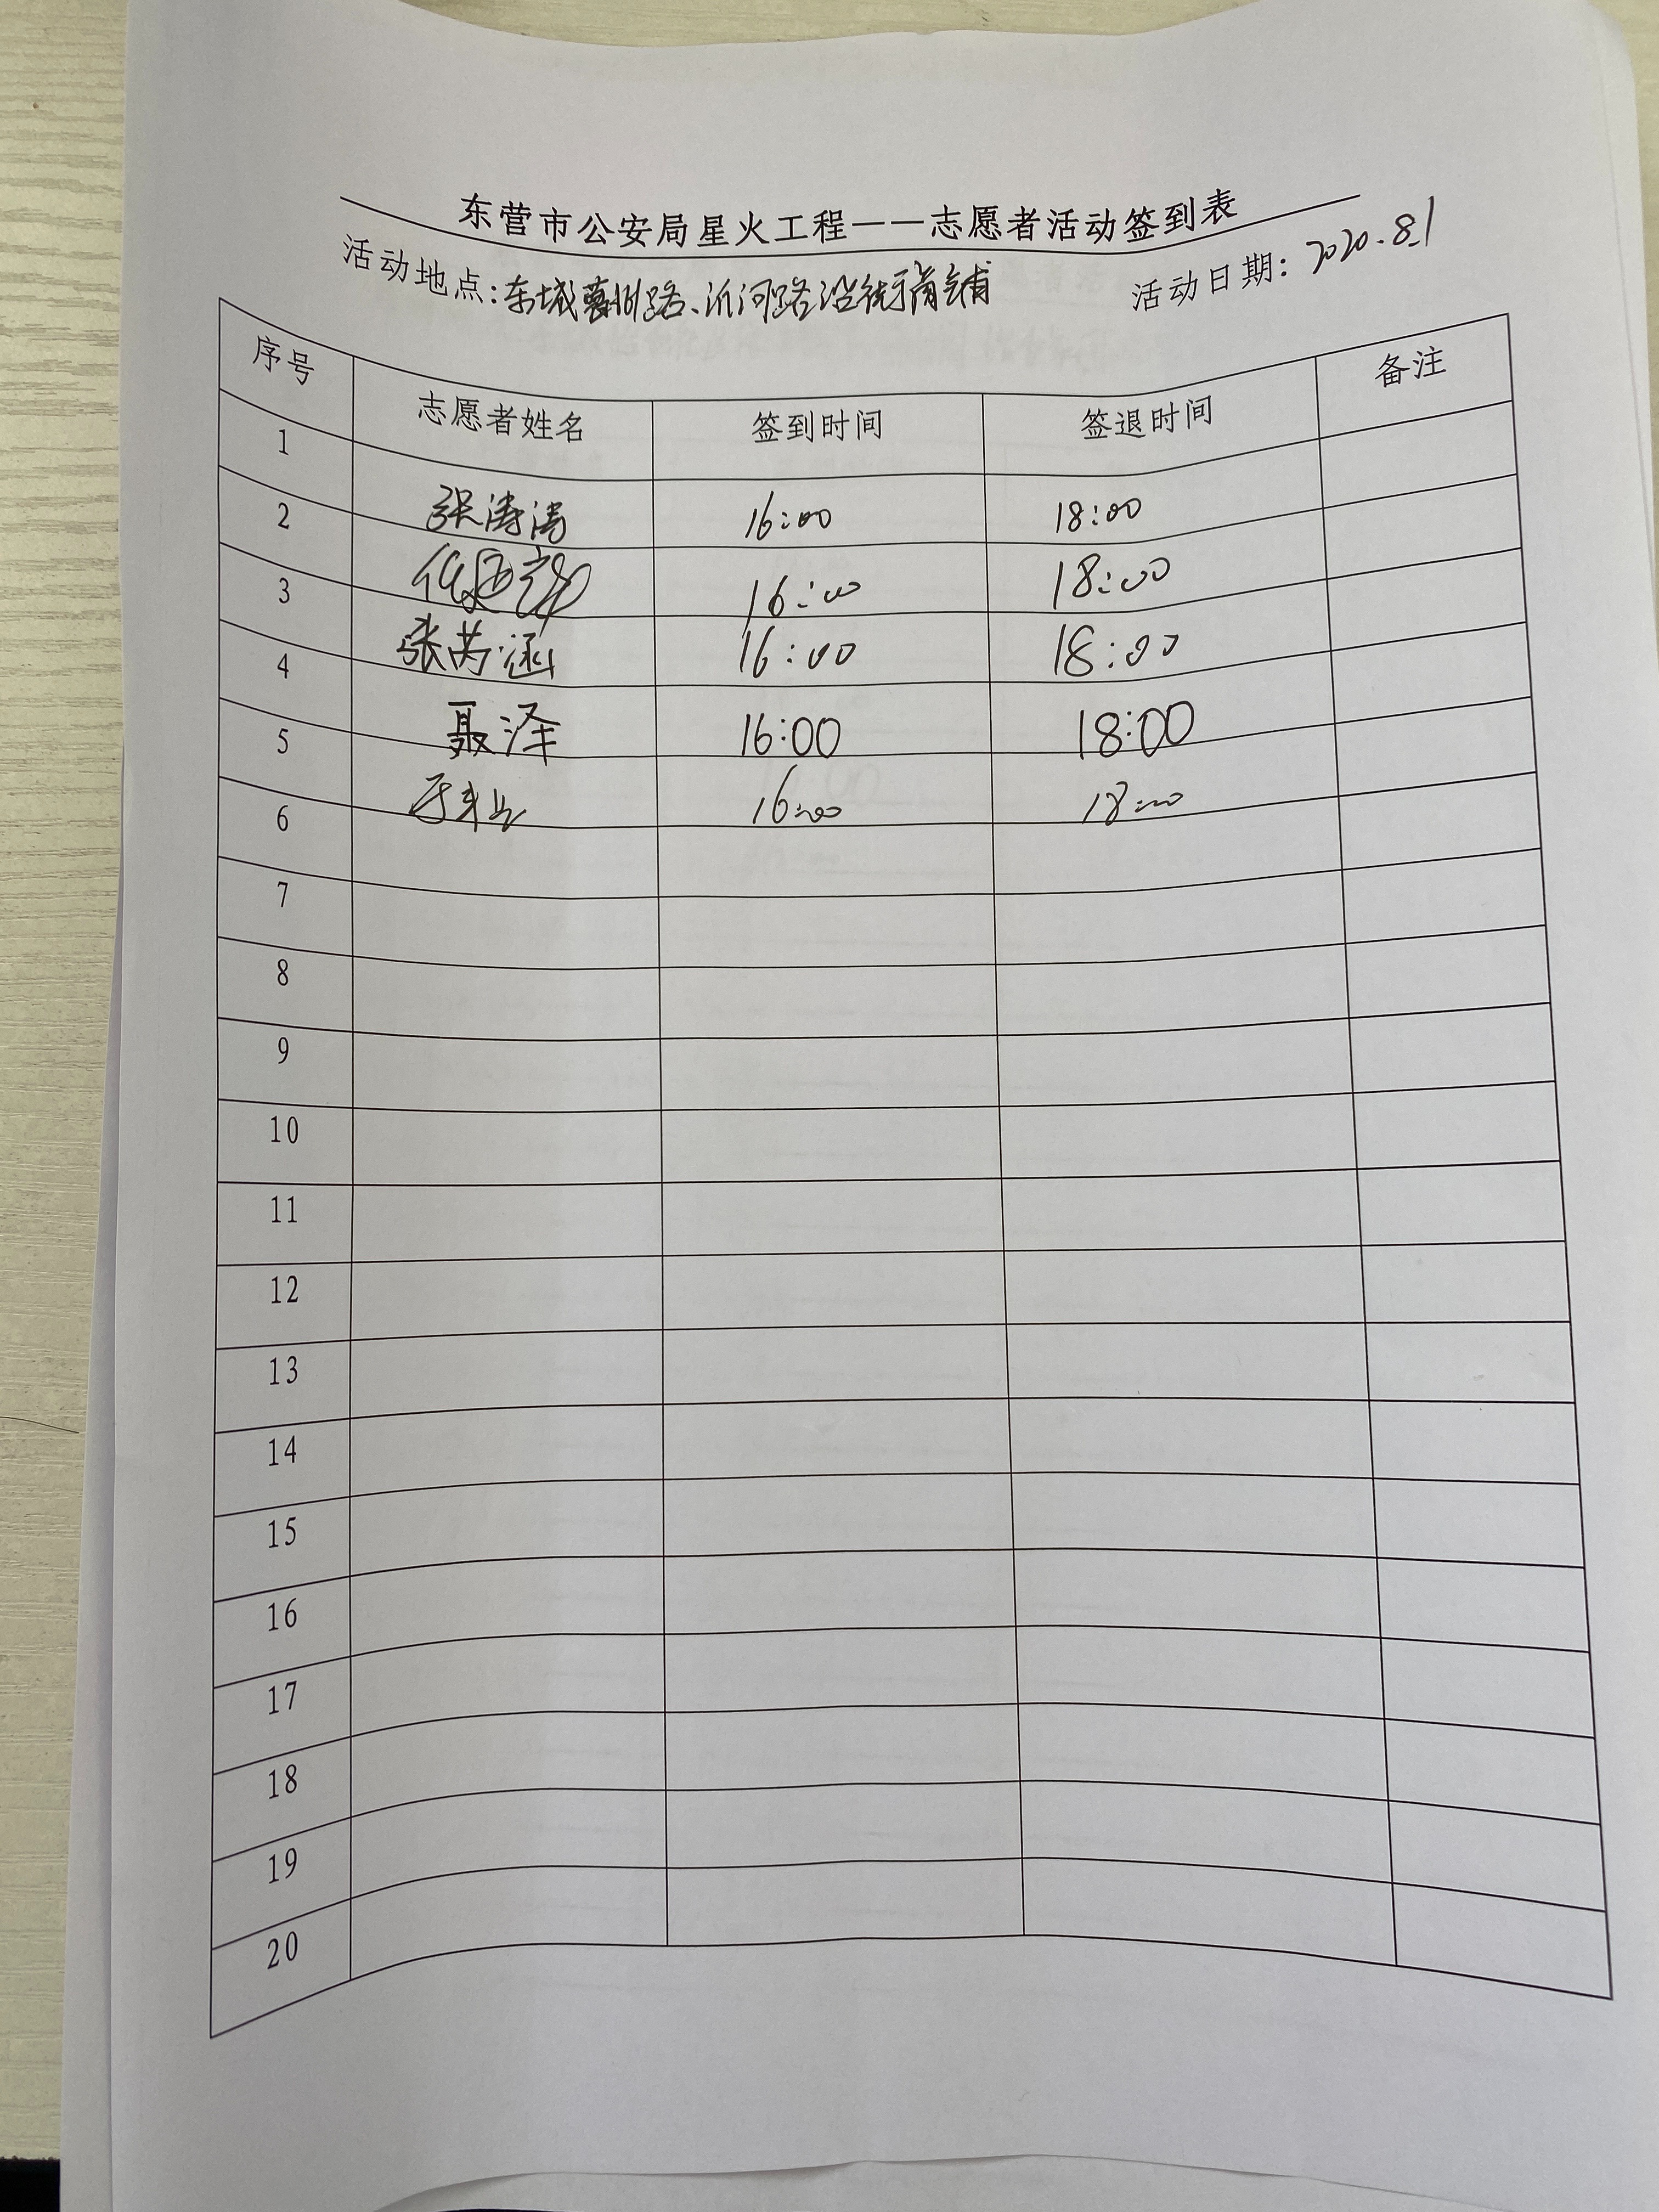 东营市公安局星火工程——志愿者活动签到表
活动地点：东城 路、沂河路沿街商铺 活动日期：2020.8.1
序号 志愿者姓名 签到时间 签退时间 备注
1 张涛涛 16:00 18:00
2 16:00 18:00
3 张芮涵 16:00 18:00
4 聂泽 16:00 18:00
5 16:00 18:00
6
7
8
9
10
11
12
13
14
15
16
17
18
19
20